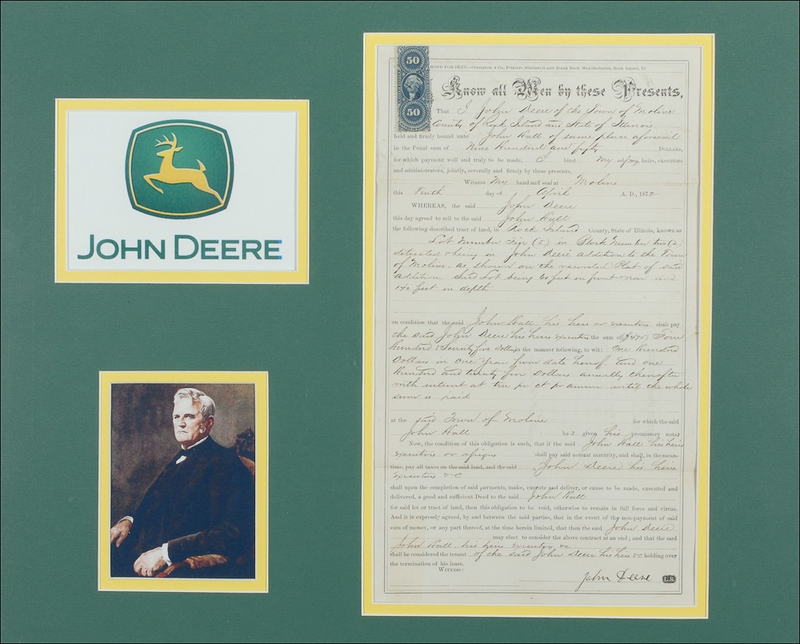 JOHN DEERE
50
50
Know all Men by these Presents,
That I John Deere of the Town of Moline
County of Rock Island and State of Illinois
held and firmly bound unto John Wall of same place aforesaid
in the Penal sum of Nine Hundred and fifty Dollars,
for which payment well and truly to be made, I bind my self, my heirs, executors
and administrators, jointly, severally and firmly by these presents,
Witness My hand and seal at Moline
this Tenth day of April A. D., 18
WHEREAS, the said John Deere
this day agreed to sell to the said John Wall
the following described tract of land, in Rock Island County, State of Illinois, known as
Lot Number in Block Number
situated & being in John Deere addition to the Town
of Moline as shown on the recorded Plat of said
addition Said Lot being 60 feet on front & rear and
140 feet in depth
on condition that the said John Wall his heirs or executors shall pay
the said John Deere his heirs executors the sum of Four
Hundred & Seventy five Dollars in the manner following, to wit: One Hundred
Dollars in one year from date hereof and one
Hundred and twenty five Dollars annually thereafter
with interest at ten pr ct pr annum until the whole
sum is paid
at the said Town of Moline for which the said
John Wall has given his promissory notes
Now, the condition of this obligation is such, that if the said John Wall his heirs
executors or assigns shall pay said notes at maturity, and shall, in the mean-
time, pay all taxes on the said land, and the said John Deere his heirs
executors &c
shall upon the completion of said payments, make, execute and deliver, or cause to be made, executed and
delivered, a good and sufficient Deed to the said John Wall
for said lot or tract of land, then this obligation to be void, otherwise to remain in full force and virtue.
And it is expressly agreed, by and between the said parties, that in the event of the non-payment of said
sum of money, or any part thereof, at the time herein limited, that then the said John Deere
may elect to consider the above contract at an end; and that the said
John Wall his heirs executors &c
shall be considered the tenant of the said John Deere his heirs &c holding over
the termination of his lease.
Witness:
John Deere L.S.